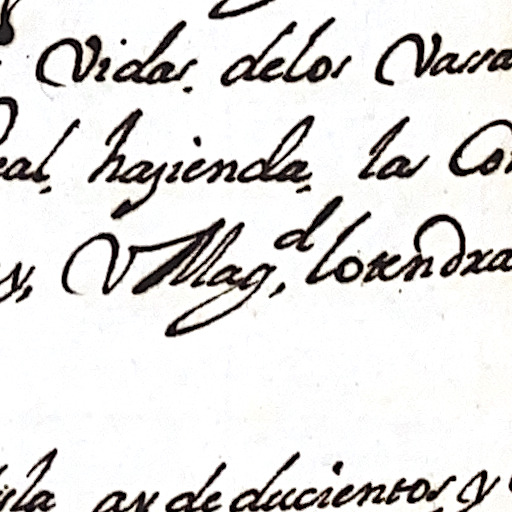 Vidas delos Vassa
eal, hazienda, las Con
y, VMag.d, lo tendra
la ay de ducientos y